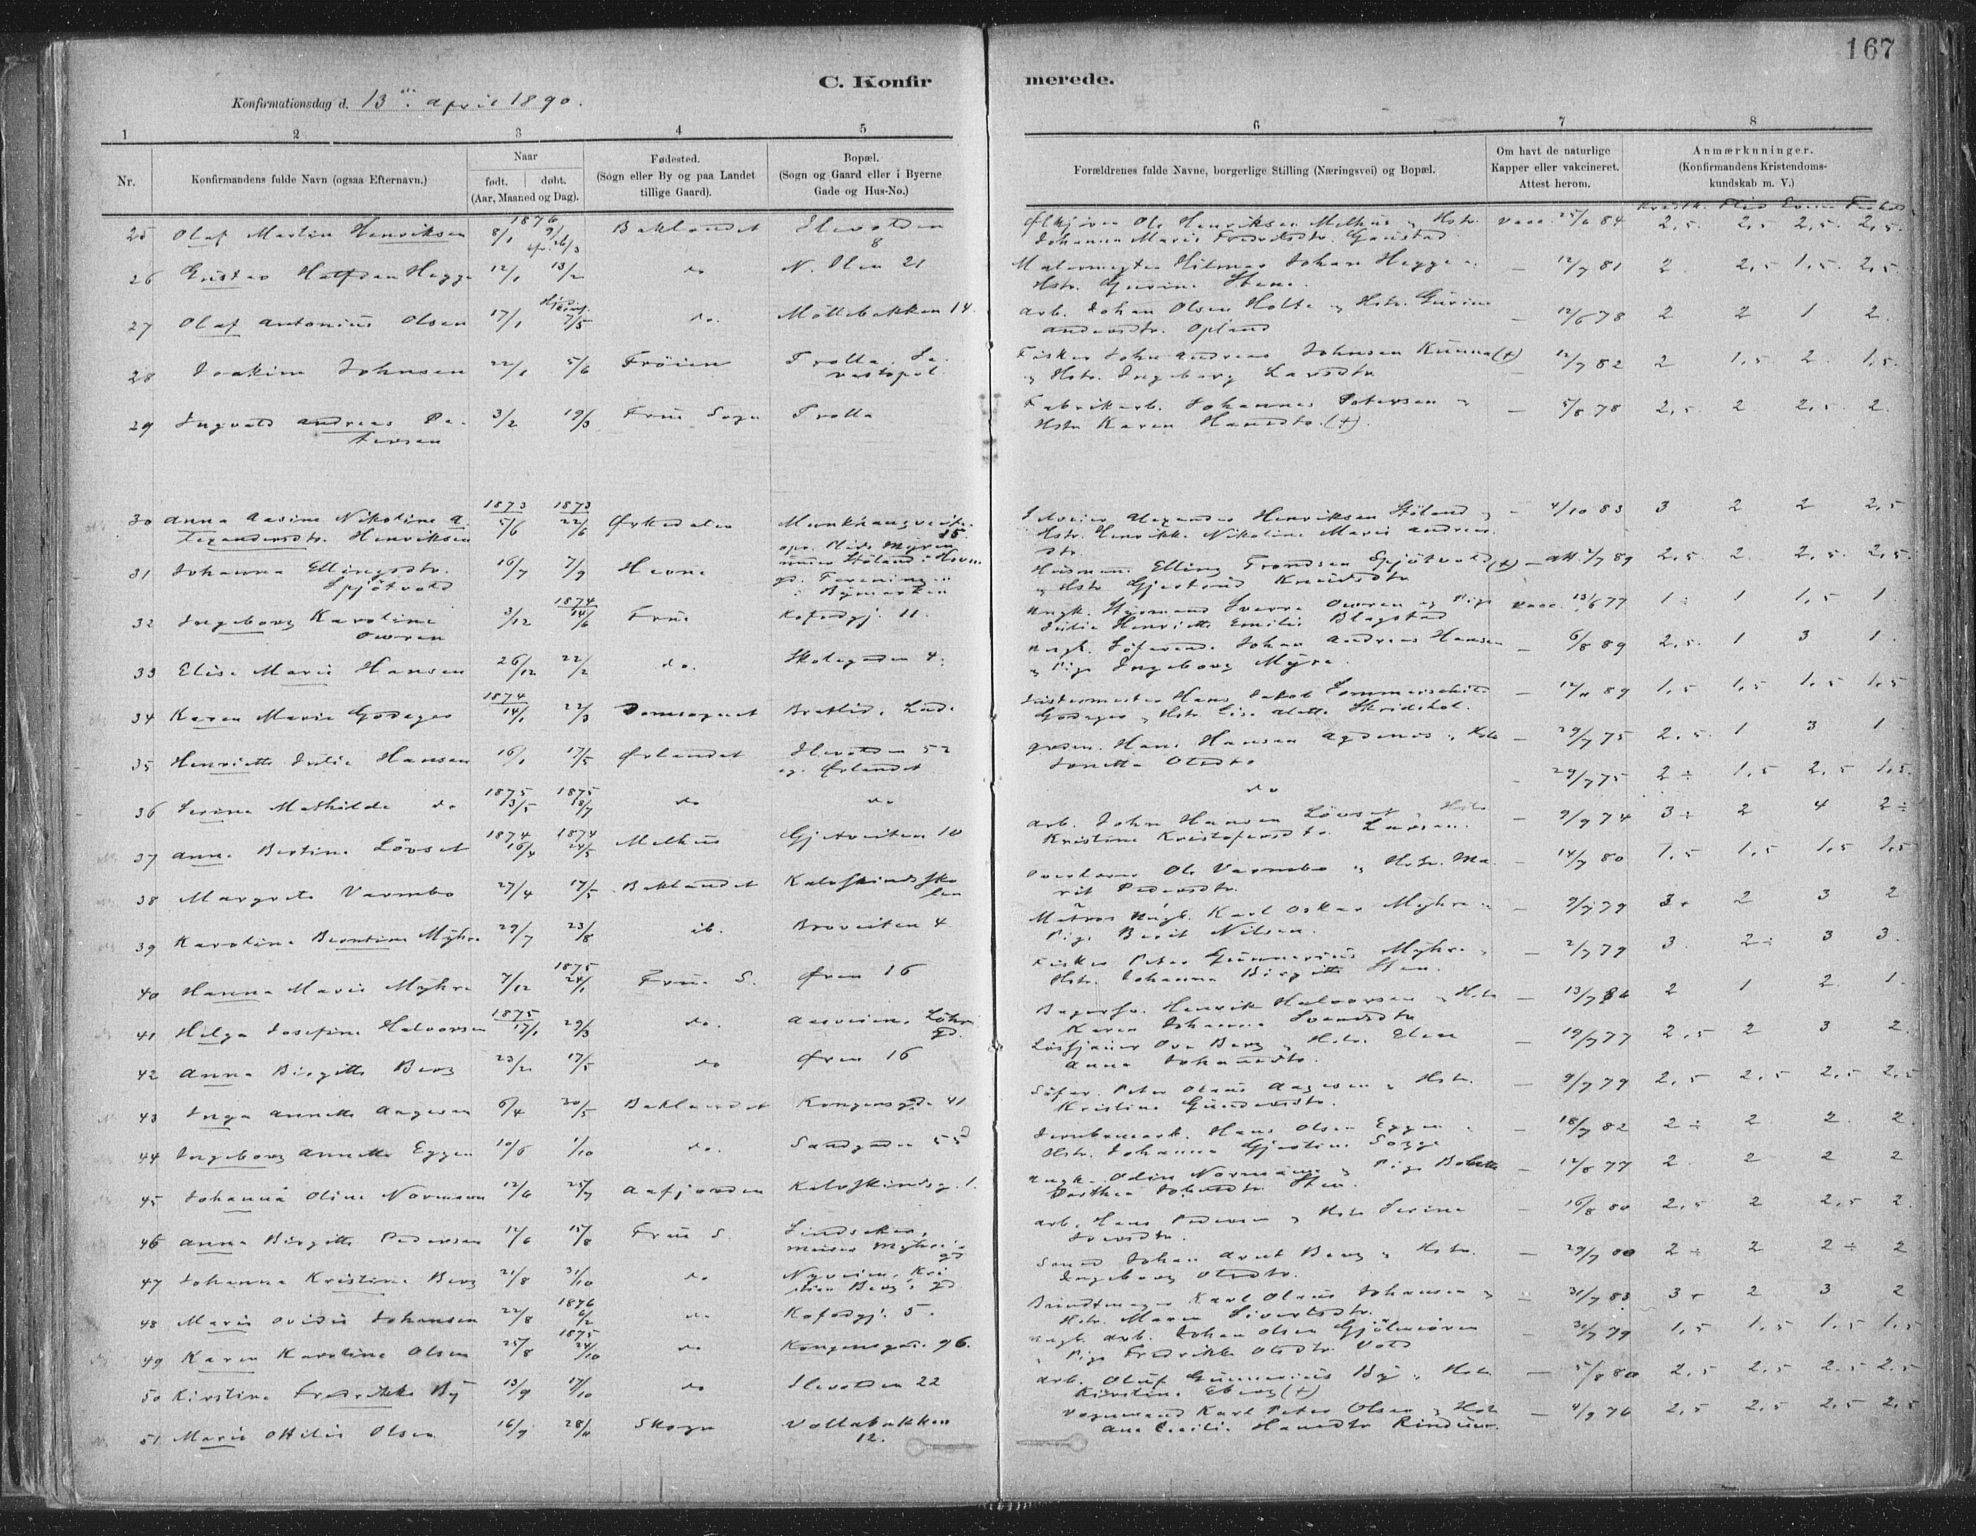 167
C. Konfir merede.
Konfirmationsdag d. 13de april 1890.
1 2 3 4 5 6 7 8
Nr.
Konfirmandens fulde Navn (ogsaa Efternavn.)
Naar
født. døbt.
(Aar, Maaned og Dag).
Fødested.
(Sogn eller By og paa Landet
tillige Gaard).
Bopæl.
(Sogn og Gaard eller i Byerne
Gade og Hus-No.)
Forældrenes fulde Navne, borgerlige Stilling (Næringsvei) og Bopæl.
Om havt de naturlige
Kapper eller vakcineret.
Attest herom.
Anmærkninger.
(Konfirmandens Kristendoms-
kundskab m. V.)
1876
25 Olaf Martin Henriksen 8/1 Baklandet Ilevolden 8 Ole Henriksen Melhus og Hstr. Johanna Marie Gaustad vacc. 25/6 84 2,5 2,5 2,5 2,5
26 Gustav Halfdan Hegge 12/1 13/2 do N. Ilen 21 Malermester Hilmar Johan Hegge Hstr. Gurine Stene — 12/7 81 2 2,5 1,5 2,5
27 Olaf Antonius Olsen 17/1 7/5 do. Möllebakken 14 arb. Johan Olsen Holte og Hstr. Gurine Andersdtr. Opland — 12/6 78 2 2 1 2
28 Joakim Johnsen 22/1 5/6 Fröien Trolla. Sevastopol Fisker John Andreas Johnsen Kunna (+) og Hstr. Ingeborg Larsdtr — 12/7 82 2 1,5 2 1,5
29 Ingvald Andreas Petersen 3/2 19/3 Frue Sogn Trolla Fabrikarb. Johannes Petersen og Hstr Karen Hansdtr. (+) — 5/8 78 2,5 2 2,5 2
1873 1873
30 Anna Aasine Nikoline Alexandersdtr. Henriksen 5/6 22/6 Ørkedalen 15 Alexander Henriksen Stöland og Hstr. Henrikke Nikoline Marie Andreasdtr. — 4/10 83 3 2 2 2,5
31 Johanna Ellingsdtr. Spjötvold 16/7 7/9 Hevne Husmand Elling Trondsen Spjötvold (+) og Hstr Gjertrud Knudsdtr — att. 2/7 89 2,5 2 2,5 2,5
1874
32 Ingeborg Karoline Owren 3/12 14/6 Frue Kofodgj. 11. Ungk. Styrmand Sverre Owren og Pige Julie Henriette Emilie Blagstad vacc. 13/6 77 1 ÷ 1 1,5 1
33 Elise Marie Hansen 26/12 22/2 do. Skolegaden 4. Ungk. Söfarende Johan Andreas Hansen og Pige Ingeborg Myra. — 6/8 89 2,5 1 3 1
1874
34 Karen Marie Godager 14/1 22/3 Domsognet Bratlid. Lade Hans Jakob Godager og Hstr. Lise Alette Skridshol. — 12/11 89 1,5 1,5 1,5 1,5
35 Henriette Julie Hansen 16/1 17/5 Ørlandet Ilevolden 52 og Ørlandet Hans Hansen Agdenes og Hstr Jonetta Olsdtr — 29/7 75 2,5 1 3 1
1875 1875
36 Serine Mathilde do 3/5 18/7 do do do — 29/7 75 2 ÷ 1,5 2,5 1,5
1874 1874
37 Anne Bertine Lövset 16/4 24/5 Melhus Gjetveiten 10 arb. John Hansen Lövset og Hstr Kristine Kristofersdtr. Larsen — 9/9 74 3 ÷ 2 4 2 ÷
38 Margrete Varmbo 27/4 17/5 Baklandet Kalvskindsskolen Overlærer Ole Varmbo og Hstr. Marit Pedersdtr. — 14/7 80 1,5 1,5 1,5 1,5
39 Karoline Berntine Myhre 29/7 23/8 ib. Broveiten 4 Matros Ungk. Karl Oskar Myhre og Pige Berit Nilsen. — 9/7 79 3 2 3 2
1875
40 Hanna Marie Myhre 7/12 24/1 Frue S. Øren 16 Fisker Peter Gunnerius Myhre og Hstr. Johanna Birgitte Sten. — 2/7 79 3 2 ÷ 3 3
1875
41 Helga Josefine Halvorsen 17/1 29/3 do. Aasveien, Henrik Halvorsen og Hstr Karen Johanna Svendsdtr — 13/7 86 2 1 2 1
42 Anna Birgitte Berg 23/2 17/5 do Øren 16 Ove Berg og Hstr. Elen Anna Johansdtr. — 19/7 77 2,5 2 3 2
43 Inga Annette Aagesen 6/4 20/5 Baklandet Kongensgade 41 Söfar. Peter Olaus Aagesen og Hstr. Kristine Gundersdtr. — 9/7 79 2,5 2,5 2,5 2,5
44 Ingeborg Annette Eggen 10/6 1/10 do. Sandgaden 55 Jernbanearb. Hans Olsen Eggen og Hstr. Johanna Gjertine — 18/7 82 2 ÷ 2 2 2
45 Johanna Oline Normann 12/6 25/7 Aafjorden Kalvskindsg. 1. Ungk. Odin Normann og Pige Bolette Dorthea Sten. — 12/8 77 2 2 2 2
46 Anna Birgitte Pedersen 12/6 15/8 Frue S. arb. Hans Pedersen og Hstr Serine Iversdtr. — 16/8 80 2,5 2 2,5 2
47 Johanna Kristine Berg 21/8 31/10 do Nyveien, Johan Arnt Berg og Hstr. Ingeborg Olsdtr. — 29/7 80 2 ÷ 2 2 ÷ 2
1876
48 Marie Ovidie Johansen 22/8 6/2 do Kofodgj. 5. Karl Olaus Johansen og Hstr. Maren Sivertsdtr. — 31/7 83 3 2 3 2
1875
49 Karen Karoline Olsen 25/8 24/10 do Kongensgade 96. Ungk. arb. Johan Olsen Gjölmeören og Pige Fredrikke Olsdtr. Vold — 31/7 79 1,5 1,5 1,5 1,5
50 Kirstine Fredrikke By 13/9 17/10 do Ilevolden 22 arb. Oluf Gunnerius By og Hstr Kirstine Eberg (+) — 5/8 80 2,5 2,5 2,5 2,5
51 Marie Ottilie Olsen 16/9 28/11 Skogn Vollabakken 12. Vognmand Karl Peter Olsen og Hstr Ane Cecilie Hansdtr Rinduum. — 4/9 76 2,5 2,5 2,5 2,5